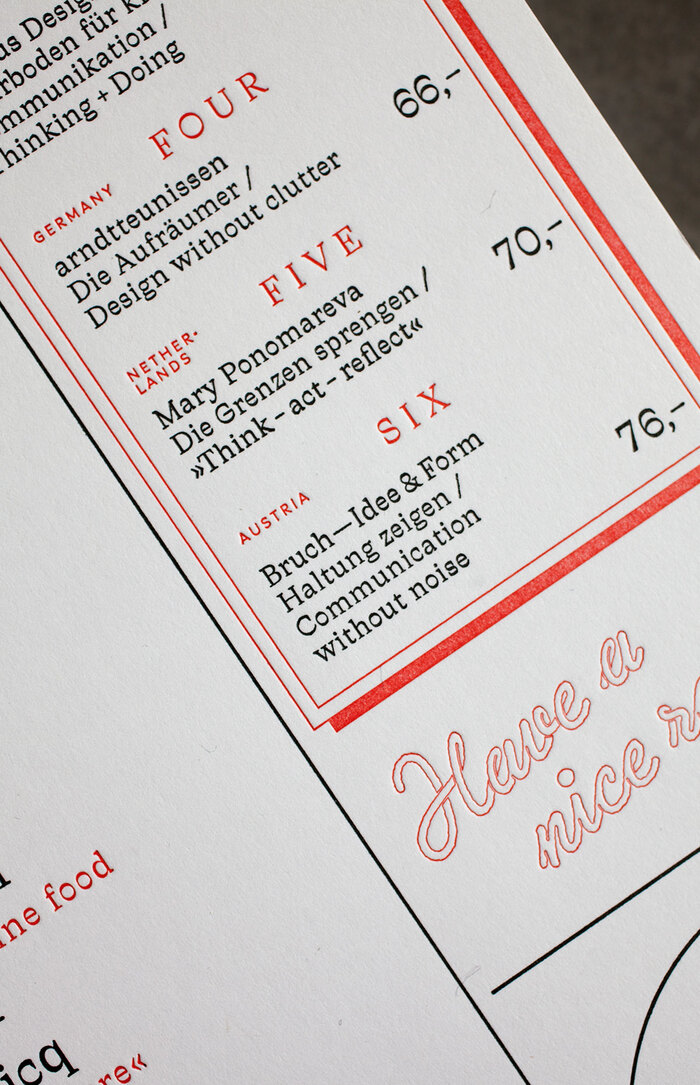 us Desig
rboden für K
mmunikation /
hinking + Doing
FOUR
66,-
GERMANY
arndtteunissen
Die Aufräumer /
Design without clutter
FIVE
70,-
NETHER-
LANDS
Mary Ponomareva
Die Grenzen sprengen /
»Think - act - reflect«
SIX
76,-
AUSTRIA
Bruch—Idee & Form
Haltung zeigen /
Communication
without noise
Have a
nice
ine food
icq
re«